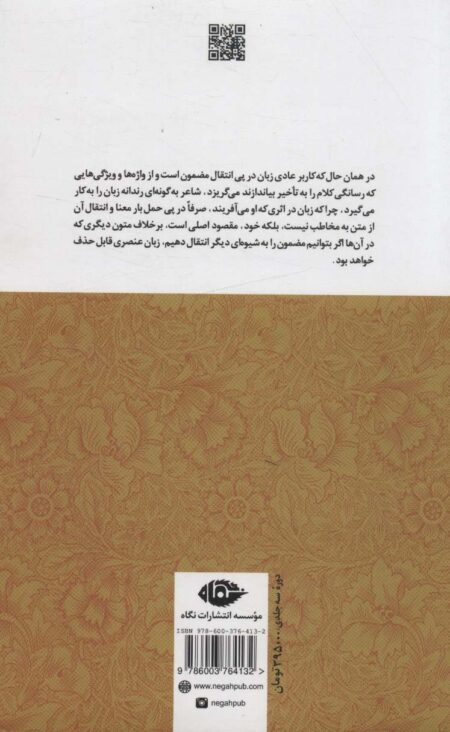 در همان حال که کاربر عادی زبان در پی انتقال مضمون است و از واژه‌ها و ویژگی‌هایی
که رسانگی کلام را به تأخیر بیاندازند می‌گریزد، شاعر به‌گونه‌ای رندانه زبان را به کار
می‌گیرد، چرا که زبان در اثری که او می‌آفریند، صرفاً در پی حمل بار معنا و انتقال آن
از متن به مخاطب نیست، بلکه خود، مقصود اصلی است، برخلاف متون دیگری که
در آن‌ها اگر بتوانیم مضمون را به شیوه‌ای دیگر انتقال دهیم، زبان عنصری قابل حذف
خواهد بود.
مؤسسه انتشارات نگاه
ISBN 978-600-376-413-2
9 786003 764132 >
www.negahpub.com
negahpub
دورهٔ سه جلدی، ۳۹۵۰۰۰ تومان